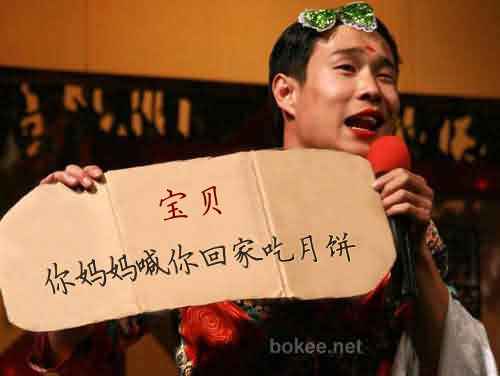 宝贝
你妈妈喊你回家吃月饼
bokee.net